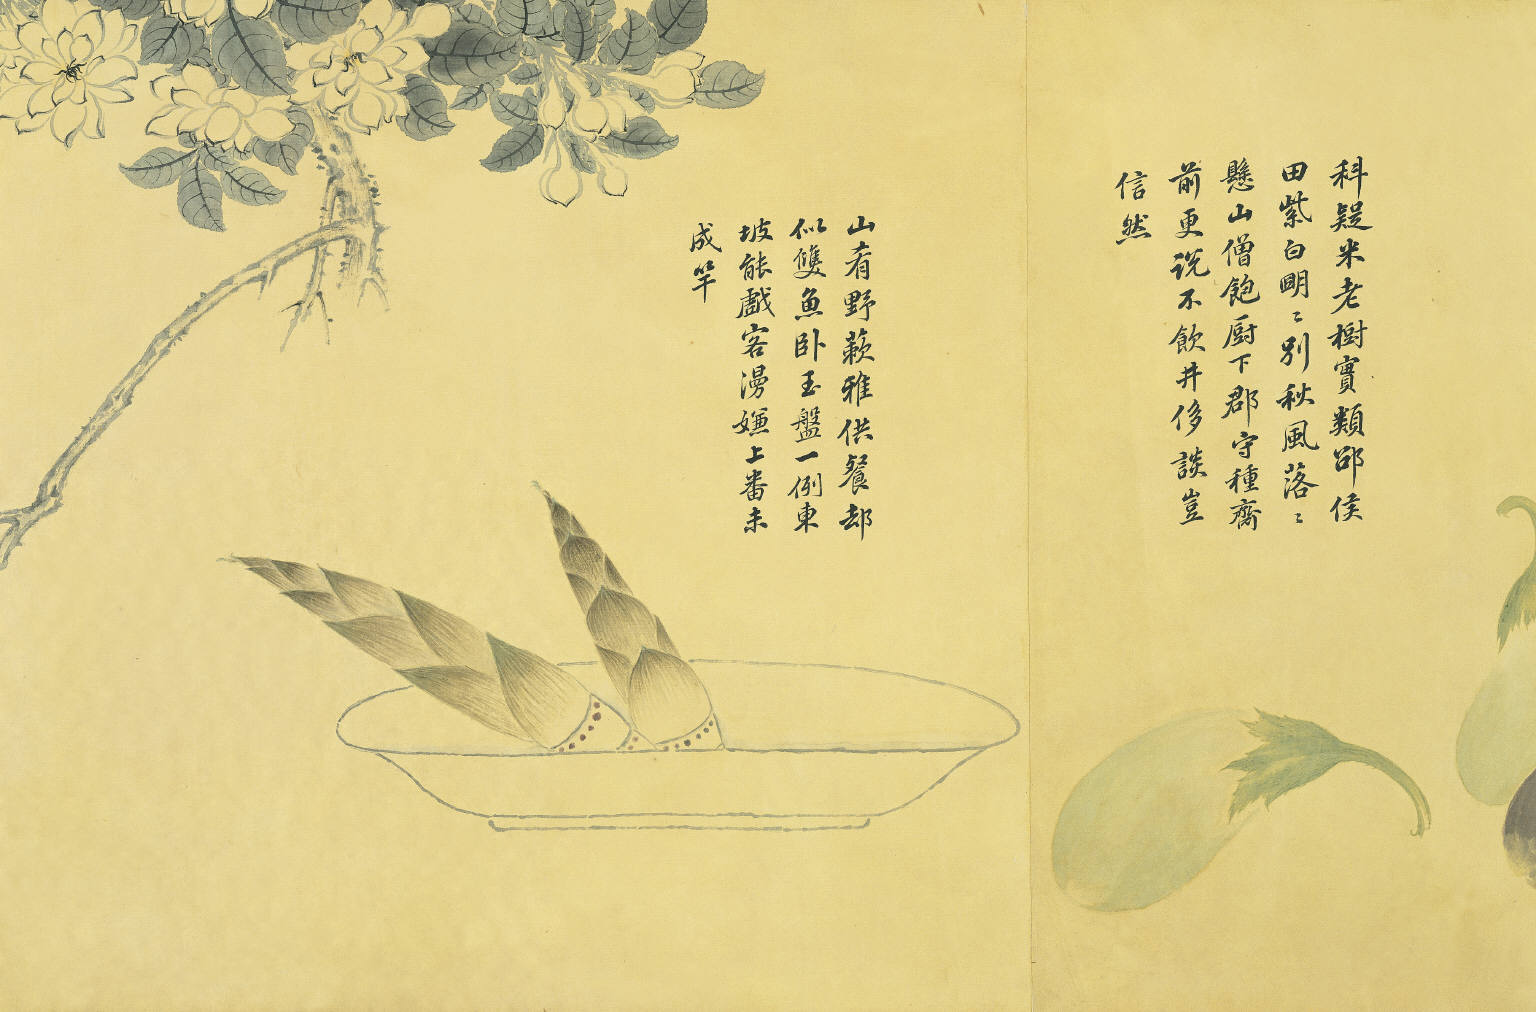 科疑米老樹實類邵侯
田紫白明〻別秋風落〻
懸山僧飽廚下郡守種齋
前更說不飲井侈談豈
信然
山肴野蔌雅供餐却
似雙魚卧玉盤一例東
坡能戲客漫嫌上番未
成竿